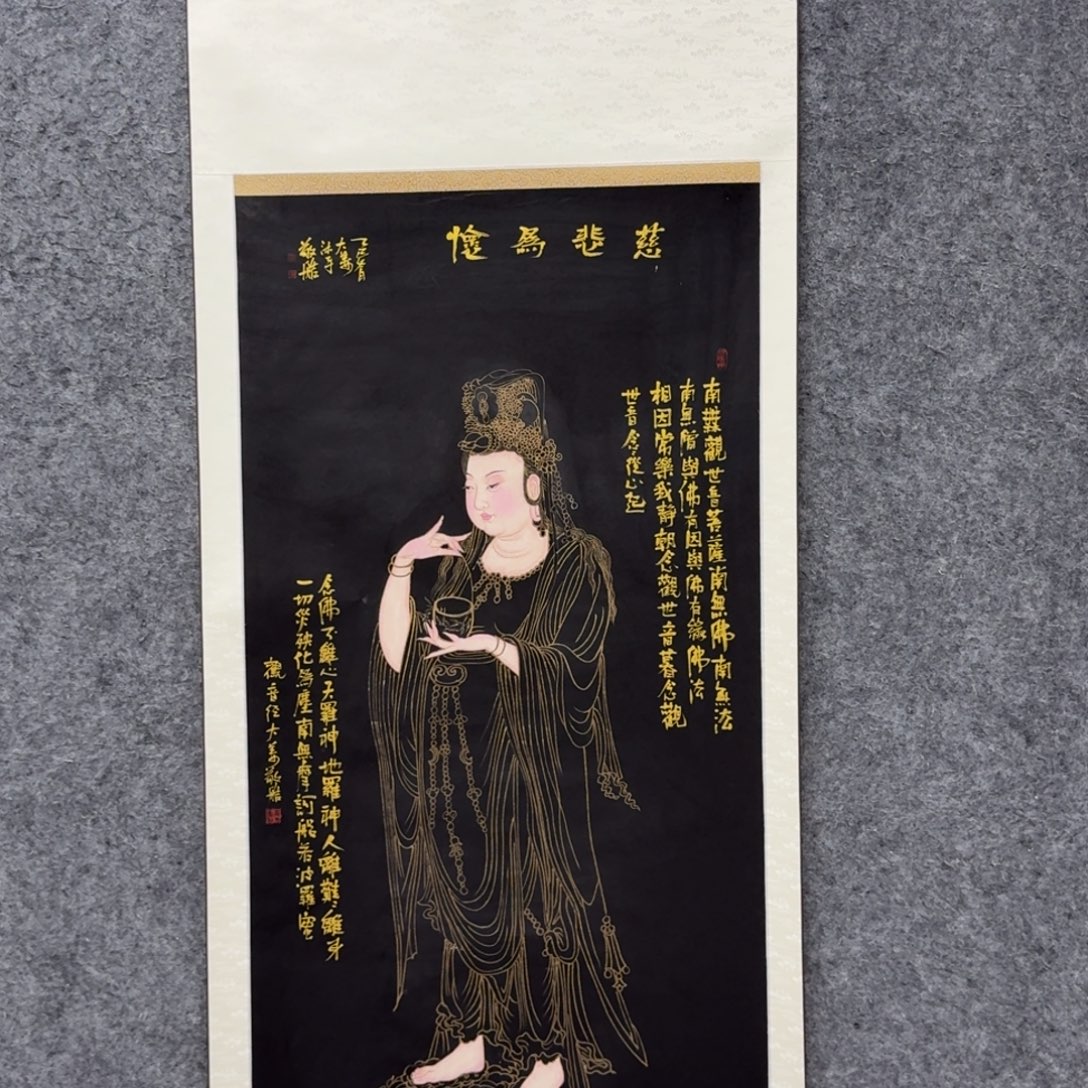 慈悲為懷
敬雕
南無觀世音菩薩南無佛南無法
南無僧與佛有因與佛有緣佛法
相因常樂我靜朝念觀世音暮念觀
世音念從心起
念佛不離心天羅神地羅神人離難難離身
一切災殃化為塵南無摩訶般若波羅密
觀音經大萬敬雕